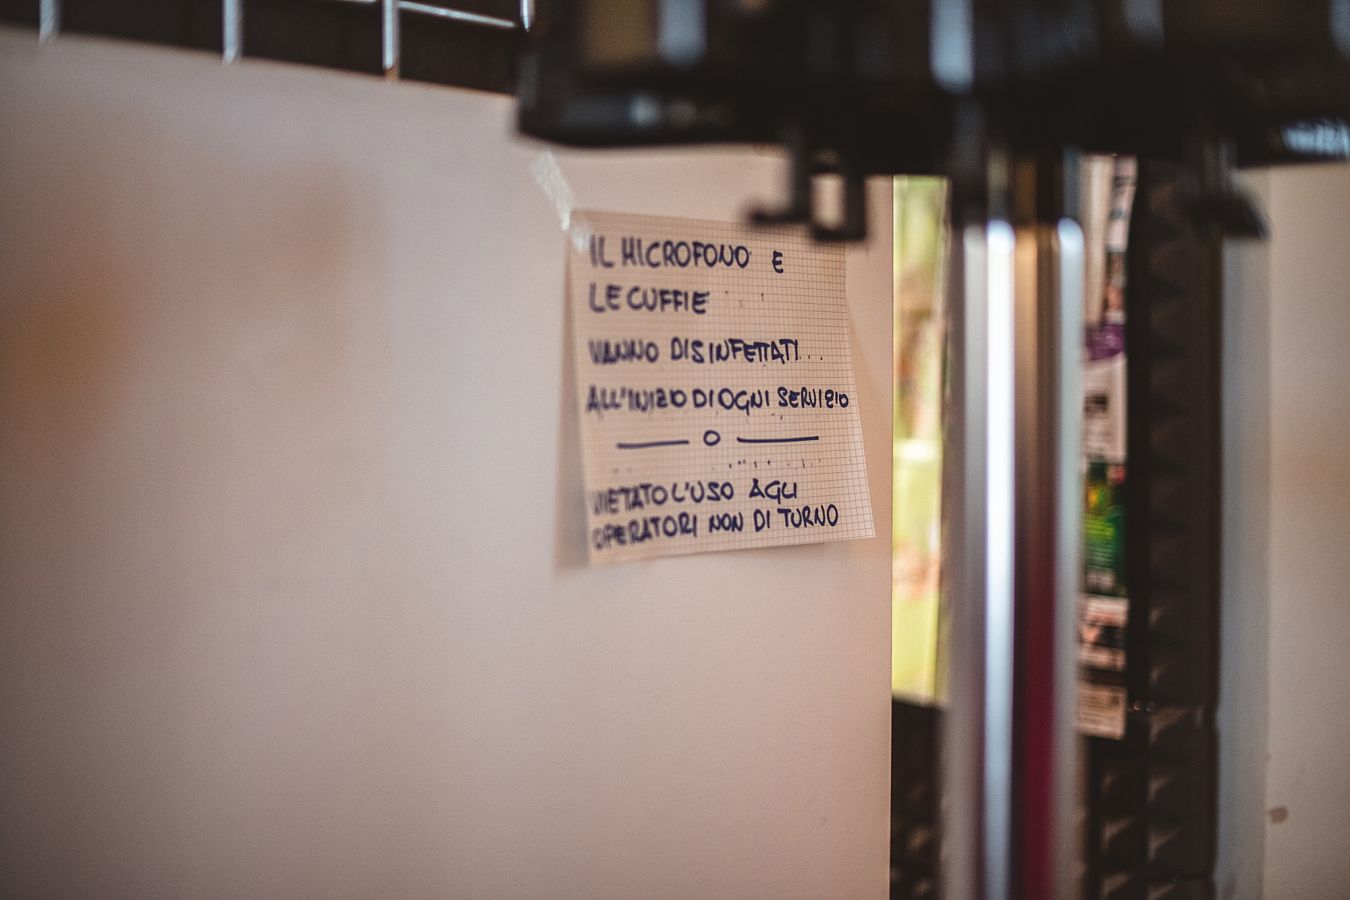 IL MICROFONO E
LE CUFFIE
VANNO DISINFETTATI...
ALL'INIZIO DI OGNI SERVIZIO
— O —
VIETATO L'USO AGLI
OPERATORI NON DI TURNO